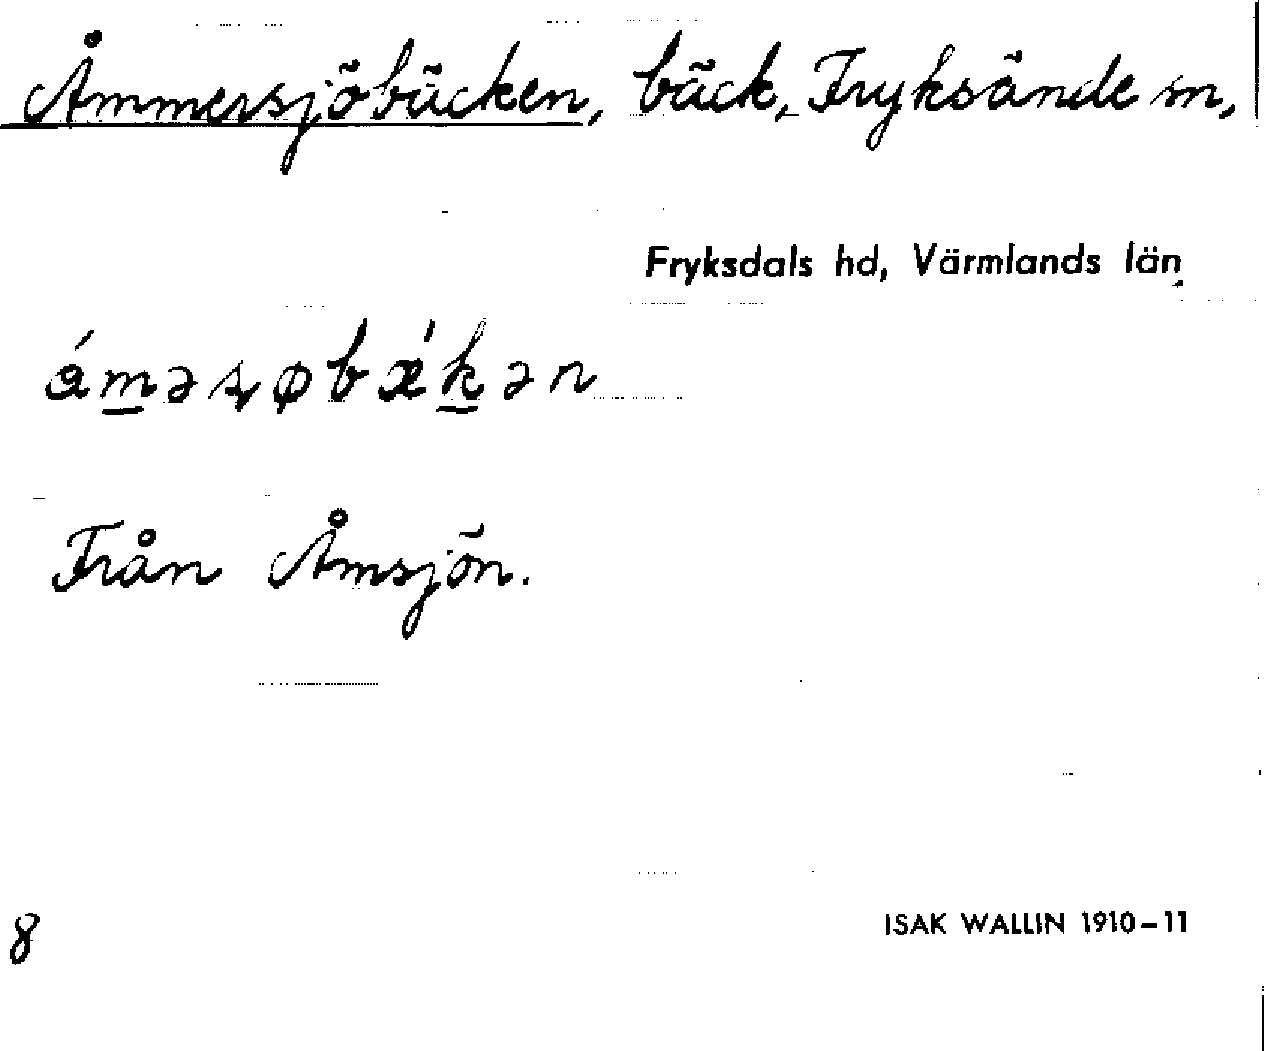 Åmmersjöbäcken, bäck, Fryksände sn,
Fryksdals hd, Värmlands län
Från Åmsjön.
8
ISAK WALLIN 1910-11